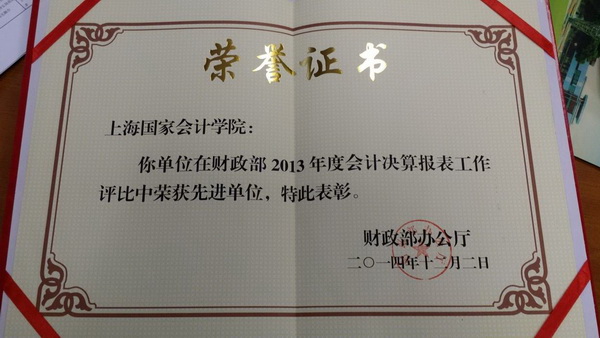 荣誉证书
上海国家会计学院：
你单位在财政部2013年度会计决算报表工作
评比中荣获先进单位，特此表彰。
财政部办公厅
二〇一四年十二月二日